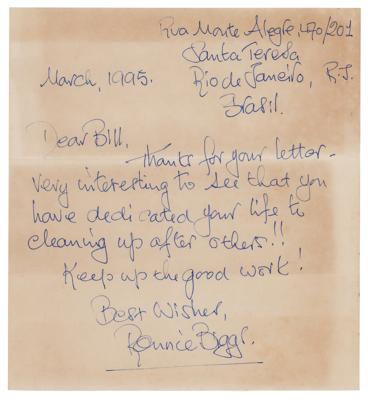 Rua Monte Alegre, 470/201
Santa Teresa
March, 1995. Rio de Janeiro, R.J.
Brasil.
Dear Bill,
Thanks for your letter -
very interesting to see that you
have dedicated your life to
cleaning up after others!!
Keep up the good work!
Best Wishes,
Ronnie Biggs.